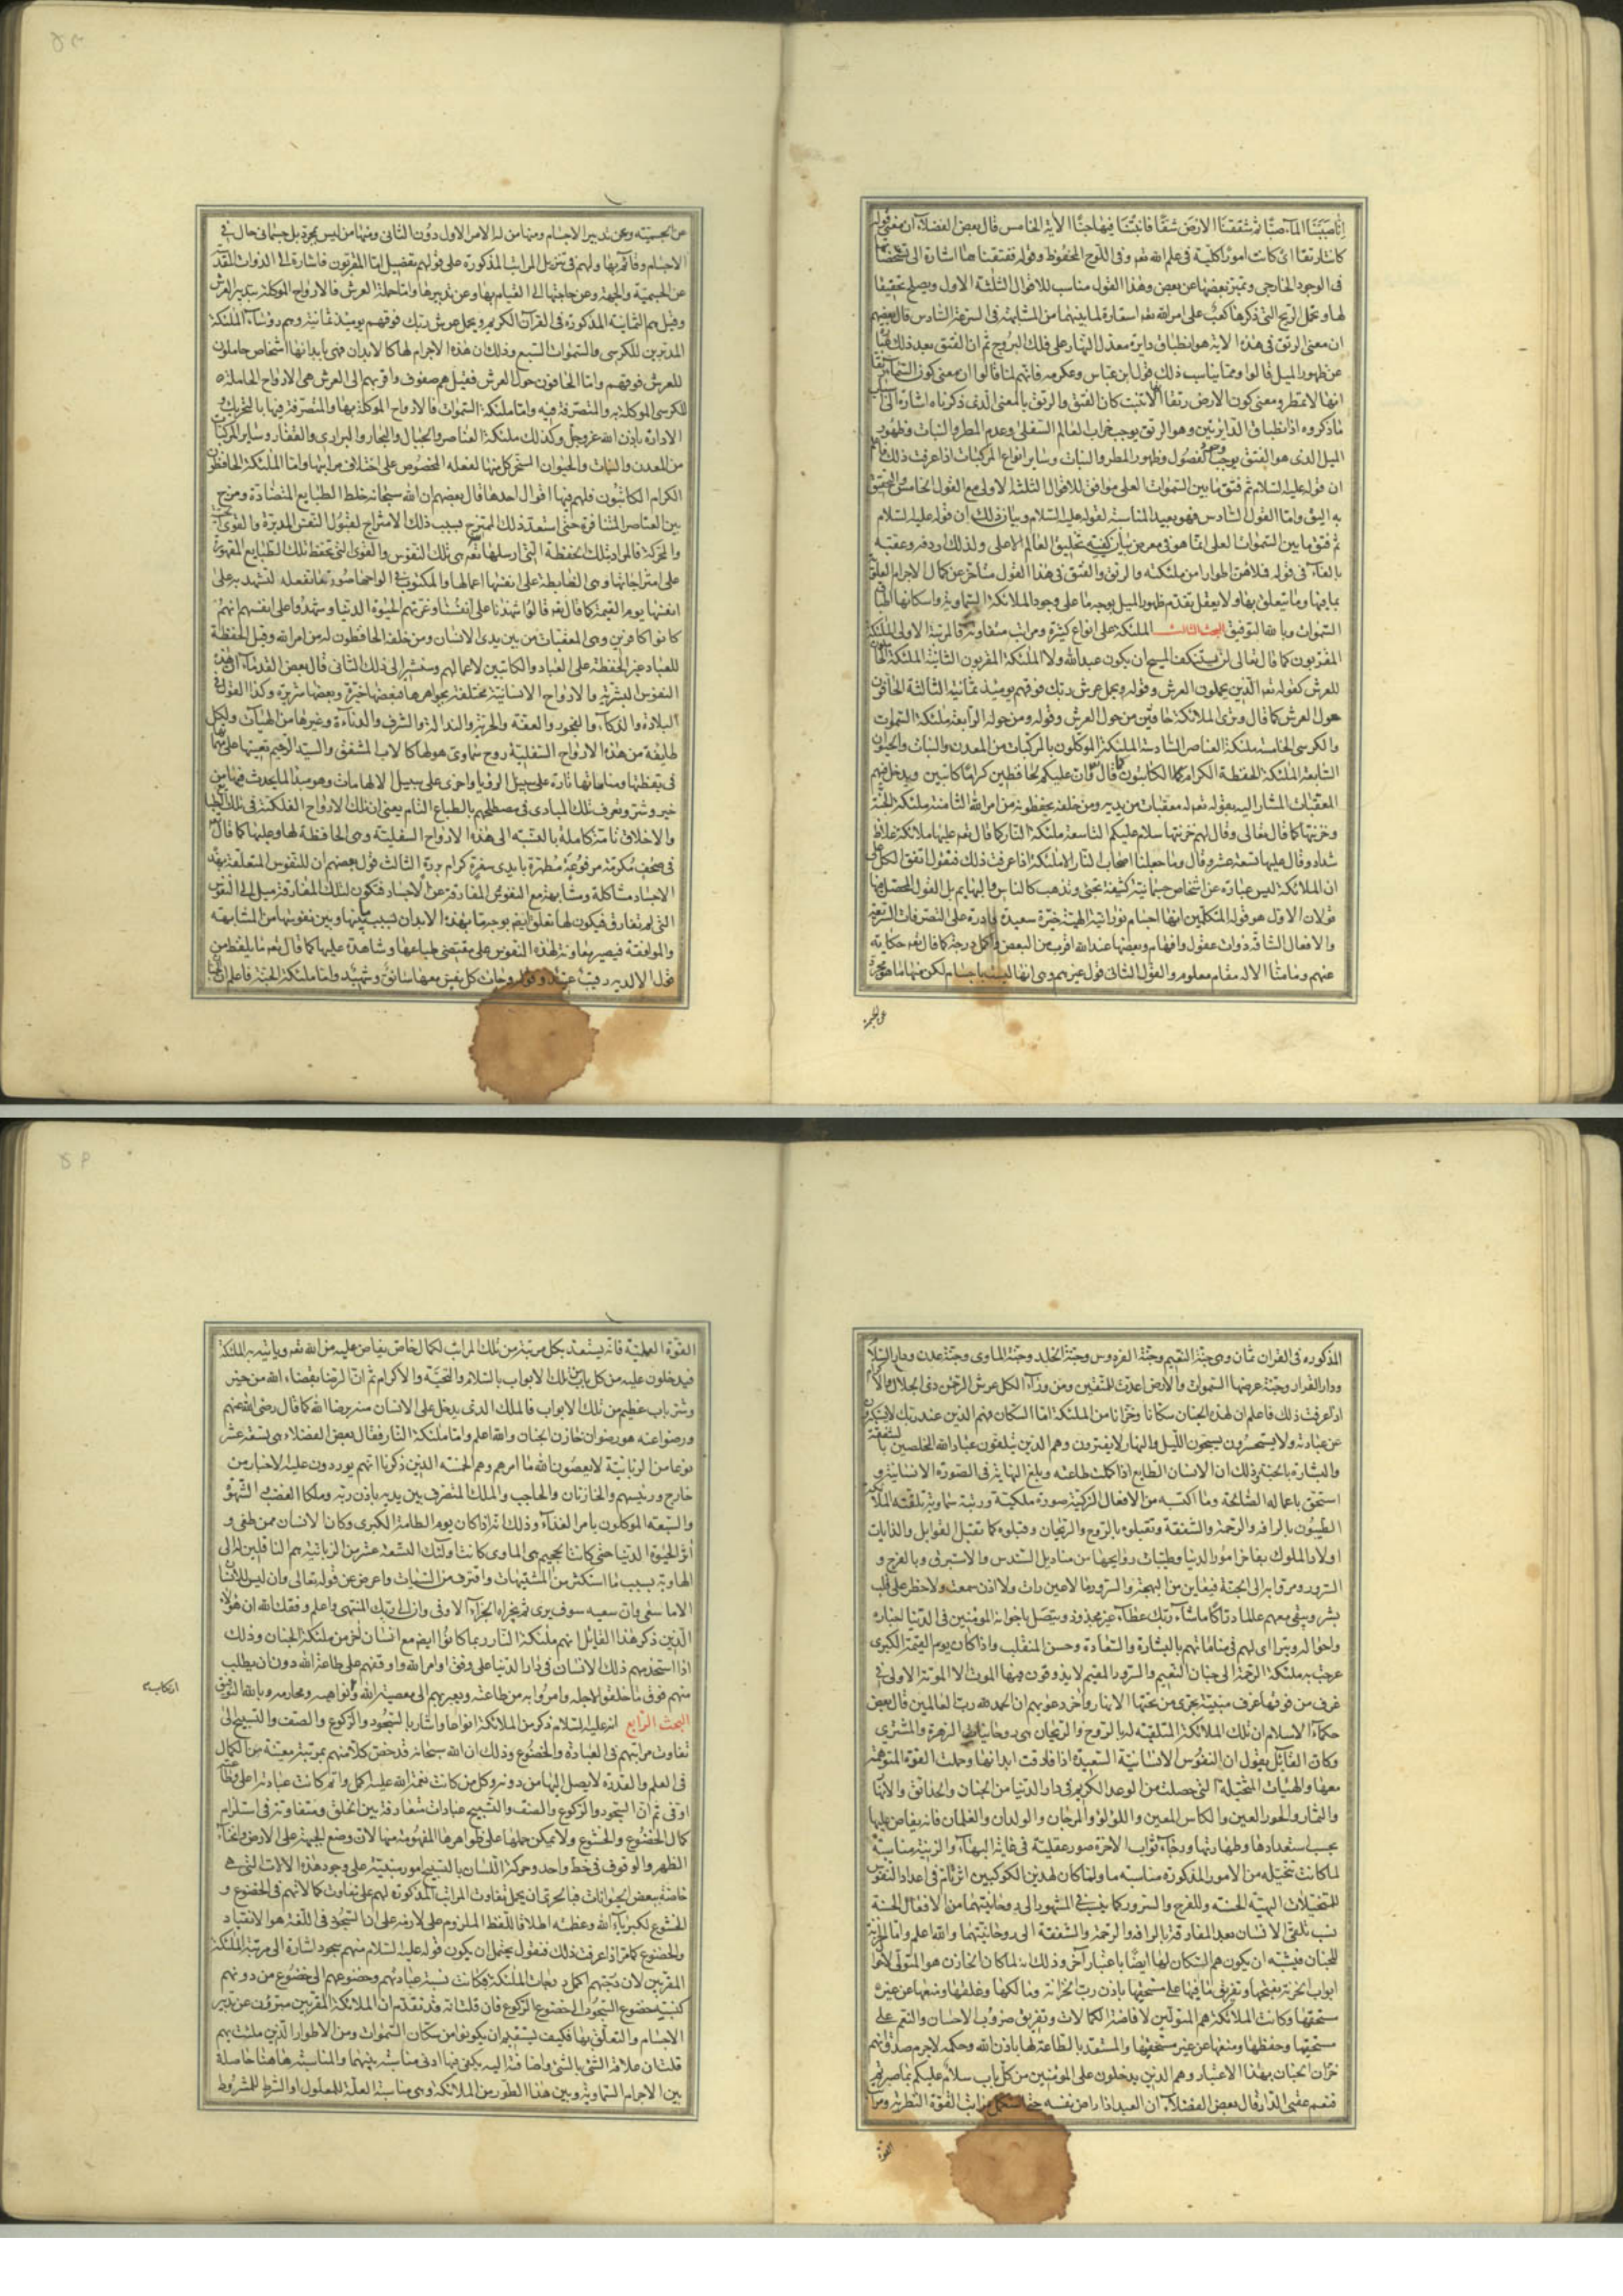 انا صببنا الماء صبا ثم شققنا الارض شقا فانبتنا فيها حبا الاية الخامس قال بعض الفضلاء ان معنى قوله
كانتا رتقا اى كانت امورا كلية فى علم الله تعه وفى اللوح المحفوظ وقوله ففتقناهما اشارة الى
فى الوجود الخارجى وتميز بعضها عن بعض وهذا القول مناسب للاقوال الثلثة الاول ويصلح تحقيقا
لها ويحمل الريح التى ذكرها كعب على امر الله تعه استعارة لما بينهما من المشابهة فى السرعة السادس قال بعضهم
ان معنى الرتق فى هذه الاية هو انطباق دايرة معدل النهار على فلك البروج ثم ان الفتق بعد ذلك
عن ظهور الميل قالوا ومما يناسب ذلك قول ابن عباس وعكرمه فانهم لما قالوا ان معنى كون السماء رتقا
انها لا تمطر ومعنى كون الارض رتقا انها لا تنبت كان الفتق والرتق بالمعنى الذى ذكرناه اشارة الى
ما ذكروه اذ انطباق الدايرتين وهو الرتق يوجب خراب العالم السفلى وعدم المطر والنبات وظهور
الميل الذى هو الفتق يوجب الفصول وظهور المطر والنبات وساير انواع المركبات اذا عرفت ذلك
ان قوله عليه السلام ثم فتق ما بين السموات العلى موافق للاقوال الثلثة الاولى مع القول الخامس والتحقيق
به اليق واما القول السادس فهو بعيد المناسبة لقوله عليه السلام وبيان ذلك ان قوله عليه السلام
ثم فتق ما بين السموات العلى انما هو فى معرض بيان كيفية تخليق العالم الاعلى ولذلك اردفه وعقبه
بالفاء فى قوله فملاهن اطوارا من ملئكته والرتق والفتق فى هذا القول متاخر عن كمال الاجرام العلوية
بما فيها وما يتعلق بها ولا يعقل تقدم ظهور الميل بوجه ما على وجود الملائكة السماوية واسكانها اطباق
السموات وبالله التوفيق البحث الثالث الملئكة على انواع كثيرة ومراتب متفاوتة فالمرتبة الاولى الملئكة
المقربون كما قال تعالى لن يستنكف المسيح ان يكون عبدا لله ولا الملئكة المقربون الثانية الملئكة الحاملون
للعرش كقوله تعه الذين يحملون العرش وقوله ويحمل عرش ربك فوقهم يومئذ ثمانية الثالثة الحافون
حول العرش كما قال وترى الملائكة حافين من حول العرش وقوله ومن حوله الرابعة ملئكة السموات
والكرسى الخامسة ملئكة العناصر السادسة الملئكة الموكلون بالمركبات من المعدن والنبات والحيوان
السابعة الملئكة الحفظة الكرام الكاتبون كما قال وان عليكم لحافظين كراما كاتبين ويدخل فيهم
المعقبات المشار اليه بقوله تعه له معقبات من بين يديه ومن خلفه يحفظونه من امر الله الثامنة ملئكة الجنة
وخزنتها كما قال تعالى وقال لهم خزنتها سلام عليكم التاسعة ملئكة النار كما قال تعه عليها ملائكة غلاظ
شداد وقال عليها تسعة عشر وقال وما جعلنا اصحاب النار الا ملئكة اذا عرفت ذلك فنقول اتفق الكل على
ان الملائكة ليس عبارة عن اشخاص جسمانية كثيفة تجئ وتذهب كالناس والبهايم بل القول المحصل فيها
قولان الاول هو قول المتكلمين انها اجسام نورانية الهية خيرة سعيدة قادرة على التصرفات السريعة
والافعال الشاقة ذوات عقول وافهام وبعضها عند الله اقرب من البعض واكمل درجة كما قال تعه حكاية
عنهم وما منا الا له مقام معلوم والقول الثانى قول غيرهم وهى انها ليست باجسام لكن منها ما هو مجرد
عن الجسمية
عن الجسمية وعن تدبير الاجسام ومنها من له الامر الاول دون الثانى ومنها من ليس بمجرد بل جسمانى حال فى
الاجسام وقائم بها ولهم فى تنزيل المراتب المذكورة على قولهم تفصيل اما المقربون فاشارة الى الذوات المقدسة
عن الجسمية والجهة وعن حاجتها الى القيام بها وعن تدبيرها واما حملة العرش فالارواح الموكلة بتدبير العرش
وقيل هم الثمانية المذكورة فى القران الكريم ويحمل عرش ربك فوقهم يومئذ ثمانية وهم رؤساء الملئكة
المدبرين للكرسى والسموات السبع وذلك ان هذه الاجرام لها كالابدان فهى بابدانها اشخاص حاملون
للعرش فوقهم واما الحافون حول العرش فقيل هم صفوف واقربهم الى العرش هى الارواح الحاملة
للكرسى الموكلة به والمتصرفة فيه واما ملئكة السموات فالارواح الموكلة بها والمتصرفة فيها بالتحريك و
الادارة باذن الله عز وجل وكذلك ملئكة العناصر والجبال والبحار والبرارى والقفار وساير المركبات
من المعدن والنبات والحيوان المسخر كل منها لفعله المخصوص على اختلاف مراتبها واما الملئكة الحافظون
الكرام الكاتبون فلهم فيها اقوال احدها قال بعضهم ان الله سبحانه خلط الطبايع المتضادة ومزج
بين العناصر المتنافرة حتى استعد ذلك الممتزج بسبب ذلك الامتزاج لقبول النفس المدبرة والقوى الحسية
والمحركة فالمراد بتلك الحفظة التى ارسلها تعه هى تلك النفوس والقوى التى تحفظ تلك الطبايع المقهورة
على امتزاجاتها وهى الضابطة على انفسها اعمالها والمكتوب فى الواحها صورة ما تفعله لتشهد به على
انفسها يوم القيمة كما قال تعه قالوا شهدنا على انفسنا وغرتهم الحيوة الدنيا وشهدوا على انفسهم انهم
كانوا كافرين وهى المعقبات من بين يدى الانسان ومن خلفه الحافظون له من امر الله وقيل الحفظة
للعباد غير الحفظة على العباد والكاتبين لاعمالهم وسنشير الى ذلك الثانى قال بعض القدماء ان هذه
النفوس البشرية والارواح الانسانية مختلفة بجواهرها فبعضها خيرة وبعضها شريرة وكذا القول فى
البلادة والذكاء والفجور والعفة والحرية والنذالة والشرف والدناءة وغيرها من الهيات ولكل
طايفة من هذه الارواح السفلية روح سماوى هو لها كالاب المشفق والسيد الرحيم يعينها على مهماتها
فى يقظتها ومناماتها تارة على سبيل الرؤيا واخرى على سبيل الالهامات وهو مبدا لما يحدث فيها من
خير وشر وتعرف تلك المبادى فى مصطلحهم بالطباع التام يعنى ان تلك الارواح الفلكية فى تلك الطباع
والاخلاق تامة كاملة بالنسبة الى هذه الارواح السفلية وهى الحافظة لها وعليها كما قال تعه
فى صحف مكرمة مرفوعة مطهرة بايدى سفرة كرام بررة الثالث قول بعضهم ان للنفوس المتعلقة بهذه
الاجساد مشاكلة ومشابهة مع النفوس المفارقة عن الاجساد فتكون لتلك المفارقة ميل الى النفوس
التى لم تفارق فيكون لها تعلق ايضا بوجه ما بهذه الابدان بسبب ما بينها وبين نفوسها من المشابهة
والموافقة فيصير معاونة لهذه النفوس على مقتضى طباعها وشاهدة عليها كما قال تعه ما يلفظ من
قول الا لديه رقيب عتيد وجاءت كل نفس معها سائق وشهيد واما ملئكة الجنة فاعلم ان
المذكورة فى القران ثمان وهى جنة النعيم وجنة الفردوس وجنة الخلد وجنة الماوى وجنة عدن ودار السلام
ودار القرار وجنة عرضها السموات والارض اعدت للمتقين ومن وراء الكل عرش الرحمن ذى الجلال والاكرام
اذا عرفت ذلك فاعلم ان لهذه الجنان سكانا وخزانا من الملئكة اما السكان فهم الذين عند ربك لا يستكبرون
عن عبادته ولا يستحسرون يسبحون الليل والنهار لا يفترون وهم الذين يتلقون عباد الله المخلصين بالشفقة
والبشارة بالجنة وذلك ان الانسان الطايع اذا كملت طاعته وبلغ النهاية فى الصورة الانسانية و
استحق باعماله الصالحة وما اكتسبه من الافعال الزكية صورة ملكية ورتبة سماوية تلقته الملائكة
الطيبون بالرافة والرحمة والشفقة وتقبلوه بالروح والريحان وقبلوه كما تقبل القوابل والدايات
اولاد الملوك بفاخر امور الدنيا وطيبات روايحها من مناديل السندس والاستبرق وبالفرح و
السرور ومروا به الى الجنة فيعاين من البهجة والسرور ما لا عين رات ولا اذن سمعت ولا خطر على قلب
بشر ويبقى معهم عالما دراكا ما شاء ربك عطاء غير مجذوذ ويتصل باخوانه المؤمنين فى الدنيا اخباره
واحواله ويترااى لهم فى مناماتهم بالبشارة والسعادة وحسن المنقلب واذا كان يوم القيمة الكبرى
عرجت به ملئكة الرحمة الى جنان النعيم والسرور المقيم لا يذوقون فيها الموت الا الموتة الاولى فى
غرف من فوقها غرف مبنية تجرى من تحتها الانهار واخر دعويهم ان الحمد لله رب العالمين قال بعض
حكماء الاسلام ان تلك الملائكة المتلقية له بالروح والريحان هى روحانيات الزهرة والمشترى
وكان القائل يقول ان النفوس الانسانية السعيدة اذا فارقت ابدانها وحملت القوة المتوهمة
معها والهيات المتخيلة التى حصلت من الوعد الكريم فى دار الدنيا من الجنان والحدائق والانهار
والثمار والحور العين والكاس المعين واللؤلؤ والمرجان والولدان والغلمان فانه يفاض عليها
بحسب استعدادها وطهارتها ورجاء ثواب الاخرة صور عقلية فى غاية البهاء والزينة مناسبة
لما كانت تتخيله من الامور المذكورة مناسبة ما ولما كان لهذين الكوكبين اثر تام فى اعداد النفوس
للمتخيلات البهية الحسنة وللفرح والسرور كما ينسب فى المشهور الى روحانيتهما من الافعال الحسنة
نسب تلقى الانسان بعد المفارقة بالرافة والرحمة والشفقة الى روحانيتهما والله اعلم واما الخزنة
للجنان فيشبه ان يكون هم السكان لها ايضا باعتبار اخر وذلك انه لما كان الخازن هو المتولى لاحوال
ابواب الخزانة بفتحها وتفريق ما فيها على مستحقها باذن رب الخزانة ومالكها وغلقها ومنعها عن غير
مستحقها وكانت الملائكة هم المتولين لافاضة الكمالات وتفريق ضروب الاحسان والنعم على
مستحقها وحفظها ومنعها عن غير مستحقيها والمستعد بالطاعة لها باذن الله وحكمه لا جرم صدق انهم
خزان الجنان بهذا الاعتبار وهم الذين يدخلون على المؤمنين من كل باب سلام عليكم بما صبرتم
فنعم عقبى الدار قال بعض الفضلاء ان العبد اذا راض نفسه حتى استكمل مراتب القوة النظرية ومراتب
القوة
القوة العملية فانه يستعد بكل مرتبة من تلك المراتب لكمال خاص يفاض عليه من الله تعه وياتيه الملئكة
فيدخلون عليه من كل باب من تلك الابواب بالسلام والتحية والاكرام ثم ان الرضا بقضاء الله من خير
وشر باب عظيم من تلك الابواب فالملك الذى يدخل على الانسان منه برضا الله كما قال رضى الله عنهم
ورضوا عنه هو رضوان خازن الجنان والله اعلم واما ملئكة النار فقال بعض الفضلاء هى تسعة عشر
نوعا من الزبانية لا يعصون الله ما امرهم وهم الخمسة الذين ذكرنا انهم يوردون عليه الاخبار من
خارج ورئيسهم والخازنان والحاجب والملك المتصرف بين يديه باذن ربه وملكا الغضب والشهوة
والسبعة الموكلون بامر الغذاء وذلك انه اذا كان يوم الطامة الكبرى وكان الانسان ممن طغى و
اثر الحيوة الدنيا حتى كانت الجحيم هى الماوى كانت اولئك التسعة عشر من الزبانية هم الناقلين له الى
الهاوية بسبب ما استكثر من المشتهيات واقترف من السيات واعرض عن قوله تعالى وان ليس للانسان
الا ما سعى وان سعيه سوف يرى ثم يجزاه الجزاء الاوفى وان الى ربك المنتهى واعلم وفقك الله ان هؤلاء
الذين ذكر هذا القائل انهم ملئكة النار ربما كانوا ايضا مع انسان اخر من ملئكة الجنان وذلك
اذا استخدمهم ذلك الانسان فى دار الدنيا على وفق اوامر الله واوقفهم على طاعة الله دون ان يطلب
منهم فوق ما خلقوا لاجله وامروا به من طاعته ويعبر بهم الى معصية الله ونواهيه ومحارمه وبالله التوفيق
ارتكاب
البحث الرابع انه عليه السلام ذكر من الملائكة انواعا واشار بالسجود والركوع والصف والتسبيح الى
تفاوت مراتبهم فى العبادة والخضوع وذلك ان الله سبحانه قد خص كلا منهم بمرتبة معينة من الكمال
فى العلم والقدرة لا يصل اليها من دونه وكل من كانت نعمة الله عليه اكمل واتم كانت عبادته اعلى
اوفى ثم ان السجود والركوع والصف والتسبيح عبادات متعارفة بين الخلق ومتفاوتة فى استلزام
كمال الخضوع والخشوع ولا يمكن حملها على ظواهرها المفهومة منها لان وضع الجبهة على الارض وانحناء
الظهر والوقوف فى خط واحد وحركة اللسان بالتسبيح امور مبنية على وجود هذه الالات التى هى
خاصة ببعض الحيوانات فبالحرى ان يحمل تفاوت المراتب المذكورة لهم على تفاوت كمالاتهم فى الخضوع و
الخشوع لكبرياء الله وعظمته اطلاقا للفظ الملزوم على لازمه على ان السجود فى اللغة هو الانقياد
والخضوع كما مر اذا عرفت ذلك فنقول يحتمل ان يكون قوله عليه السلام منهم سجود اشارة الى مرتبة الملئكة
المقربين لان درجتهم اكمل درجات الملئكة فكانت نسبة عبادتهم وخضوعهم الى خضوع من دونهم
كنسبة خضوع السجود الى خضوع الركوع فان قلت انه قد تقدم ان الملائكة المقربين مبرؤن عن تدبير
الاجسام والتعلق بها فكيف يستقيم ان يكونوا من سكان السموات ومن الاطوار الذين ملئت بهم
قلت ان علاقة الشئ بالشئ واضافته اليه يكفى فيها ادنى مناسبة بينهما والمناسبة هاهنا حاصلة
بين الاجرام السماوية وبين هذا الطور من الملائكة وهى مناسبة العلة للمعلول او الشرط للمشروط